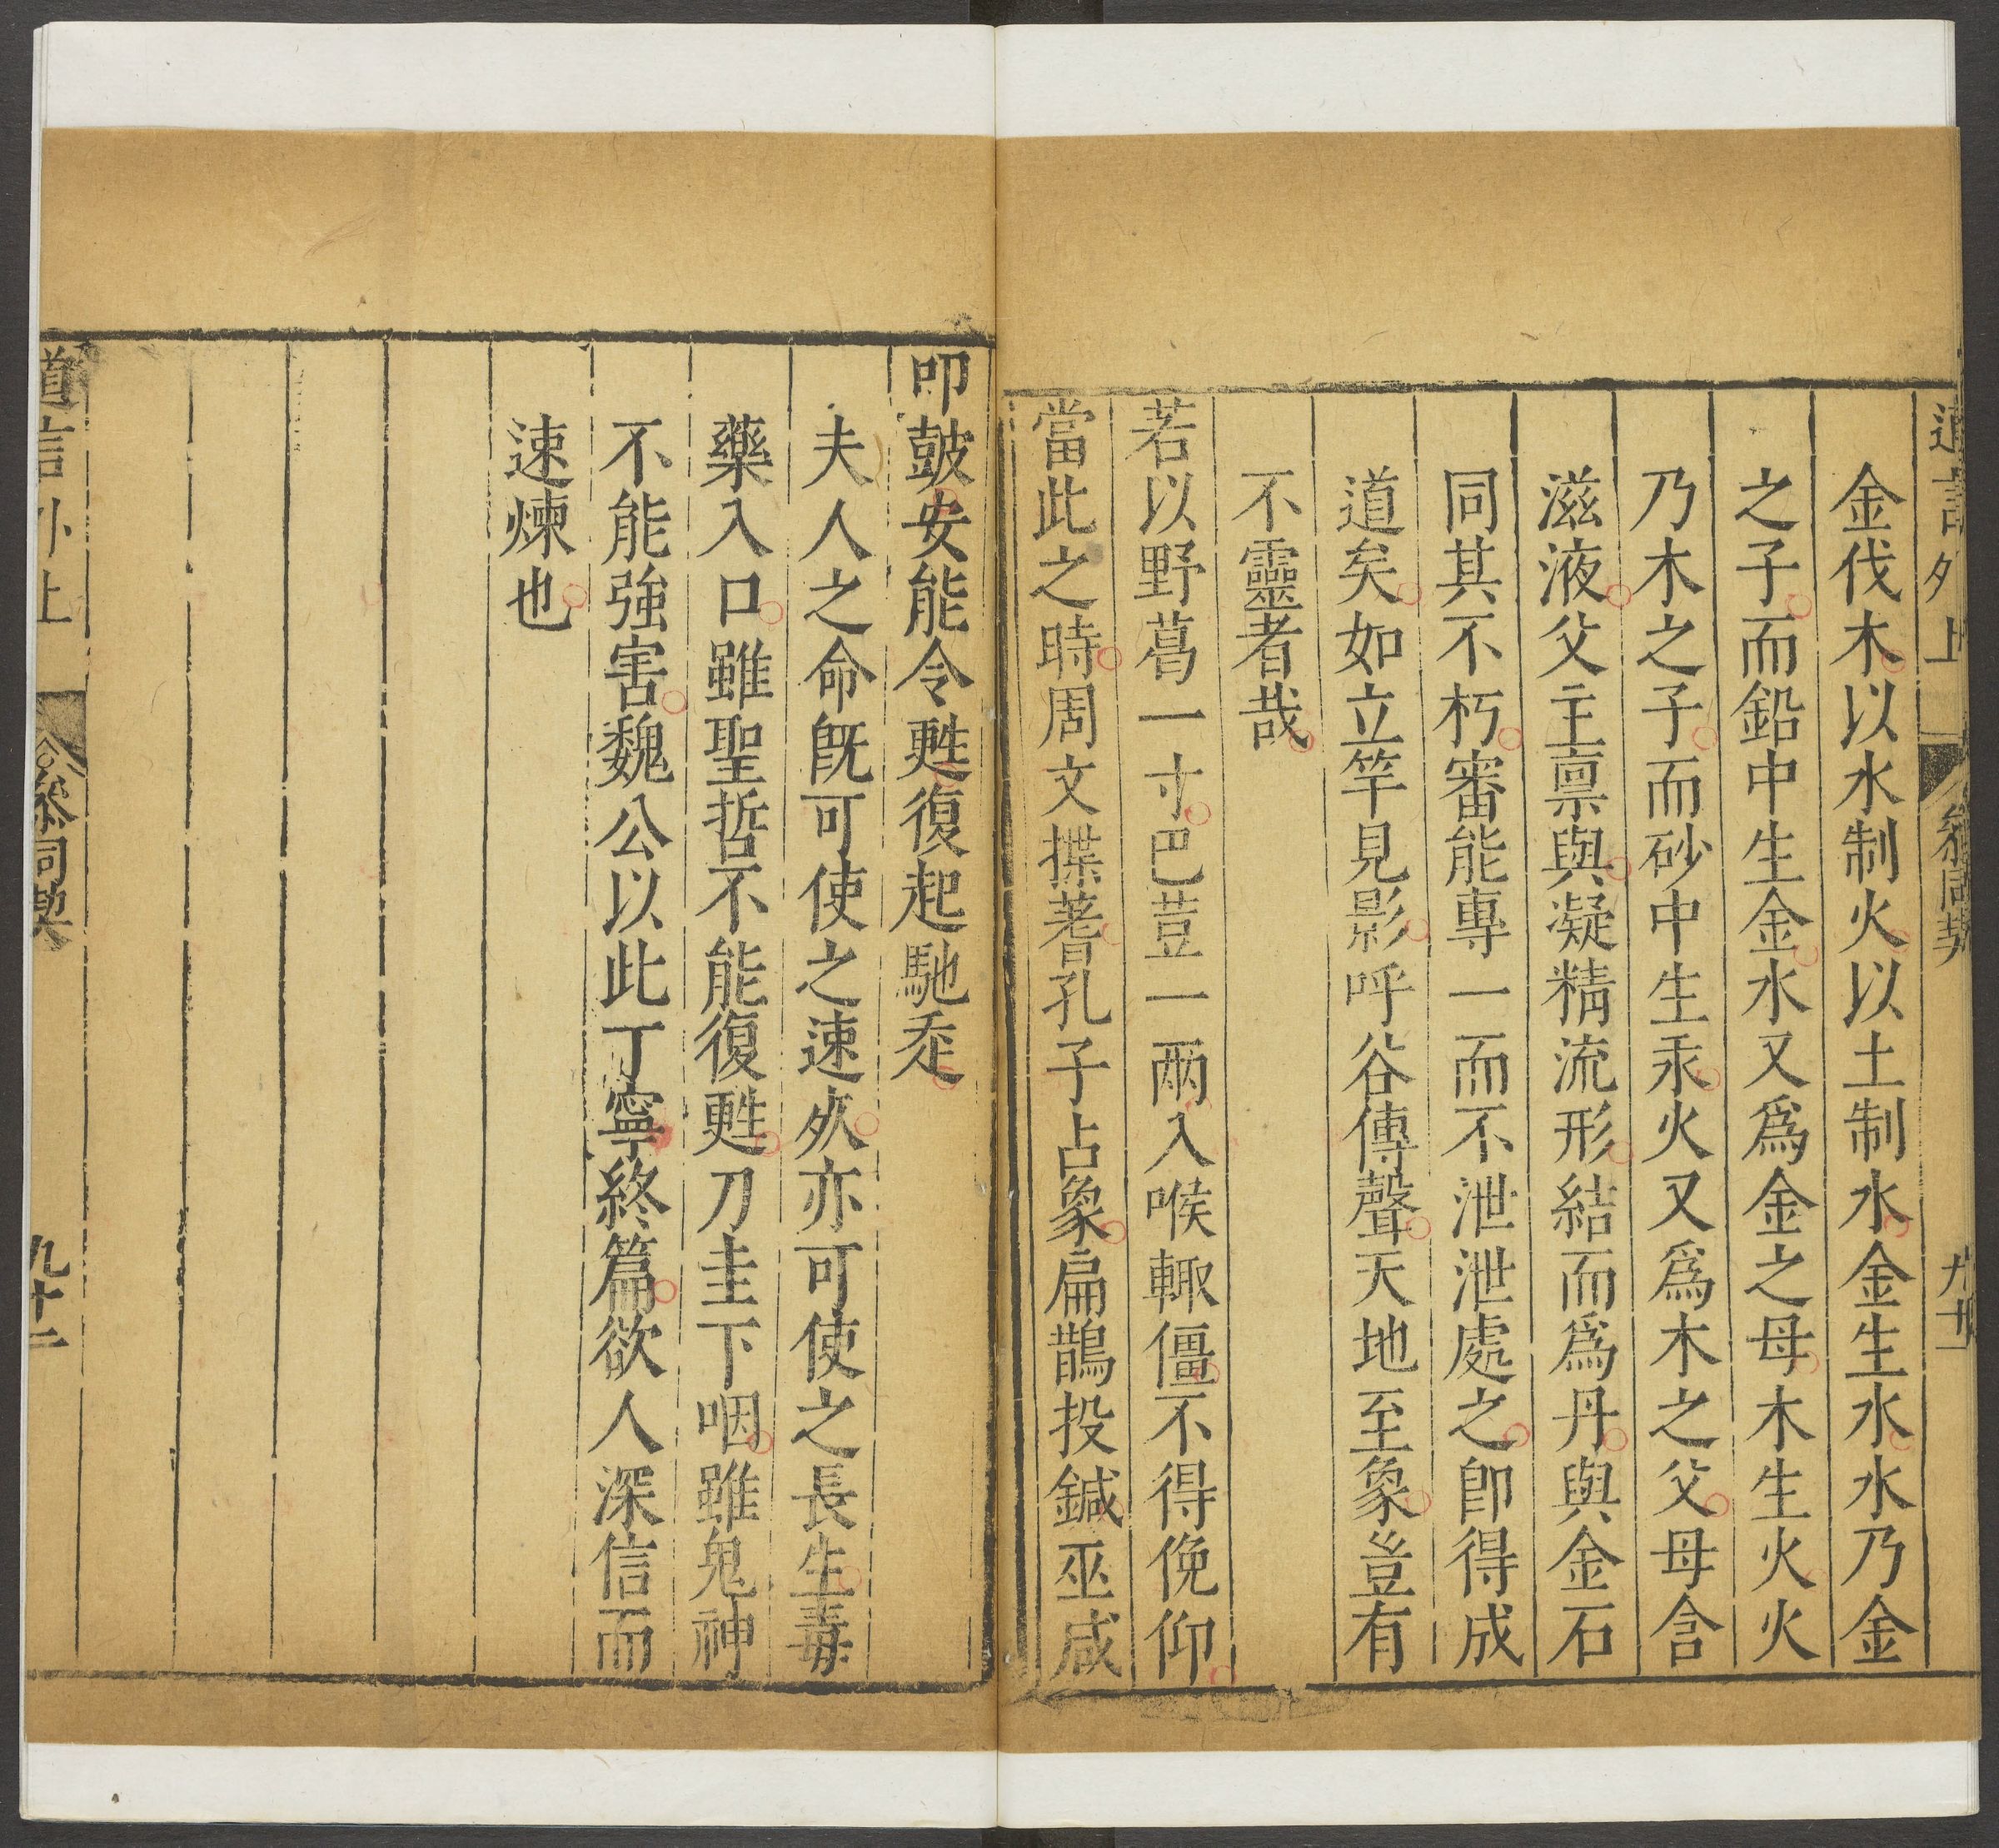 金伐木以水制火以土制水金生水水乃金
之子而鉛中生金水又爲金之母木生火火
乃木之子而砂中生汞火又爲木之父母含
滋液父主禀與凝精流形結而爲丹與金石
同其不朽審能專一而不泄泄處之卽得成
道矣如立竿見影呼谷傳聲天地至象豈有
不靈者哉
若以野葛一寸巴荳一兩入喉輙僵不得俛仰
當此之時周文揲蓍孔子占象扁鵲投鍼巫咸
叩皷安能令甦復起馳赱
夫人之命旣可使之速㱙亦可使之長生毒
藥入口雖聖哲不能復甦刀圭下咽雖鬼神
不能強害魏公以此丁寧終篇欲人深信而
速煉也
道言外上
參同契
九十二